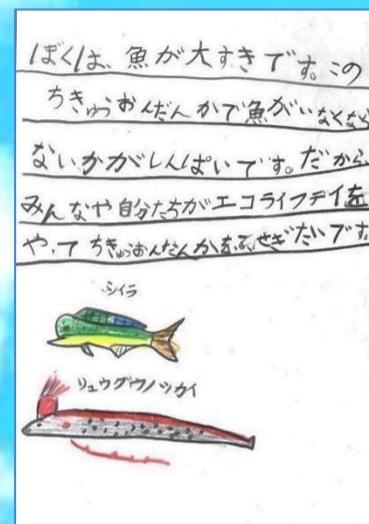 ぼくは、魚が大すきです。この
ちきゅうおんだんかで魚がいなくなら
ないかがしんぱいです。だから
みんなや自分たちがエコライフデイを
やって ちきゅうおんだんかをふせぎたいです。
シイラ
リュウグウノツカイ